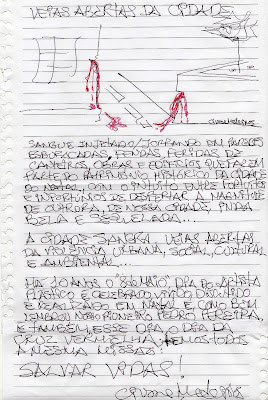 VEIAS ABERTAS DA CIDADE
SANGUE INJETADO/JORRANDO EM PAREDES
ESBURACADAS, FENDAS, FERIDAS DE
CANTEIROS, OBRAS E EDIFÍCIOS QUE FAZEM
PARTE DO PATRIMÔNIO HISTÓRICO DA CIDADE
DO NATAL, COM O INTUITO ENTRE FORTUITOS
E INFORTÚNIOS DE DESPERTAR A MAGNITUDE
DE OUTRORA, DE NOSSA CIDADE, AINDA
BELA E SEQUELADA...
A CIDADE SANGRA VEIAS ABERTAS
DA VIOLÊNCIA URBANA, SOCIAL, CULTURAL
E AMBIENTAL...
HÁ 10 ANOS O "8 DE MAIO, DIA DO ARTISTA
PLÁSTICO É CELEBRADO, VIVIDO, DISCUTIDO
E REALIZADO EM NATAL E COMO BEM
LEMBROU NOSSO PIONEIRO PEDRO PEREIRA,
É TAMBÉM, ESSE DIA, O DIA DA
CRUZ VERMELHA, TEMOS TODOS
A MESMA MISSÃO:
SALVAR VIDAS!